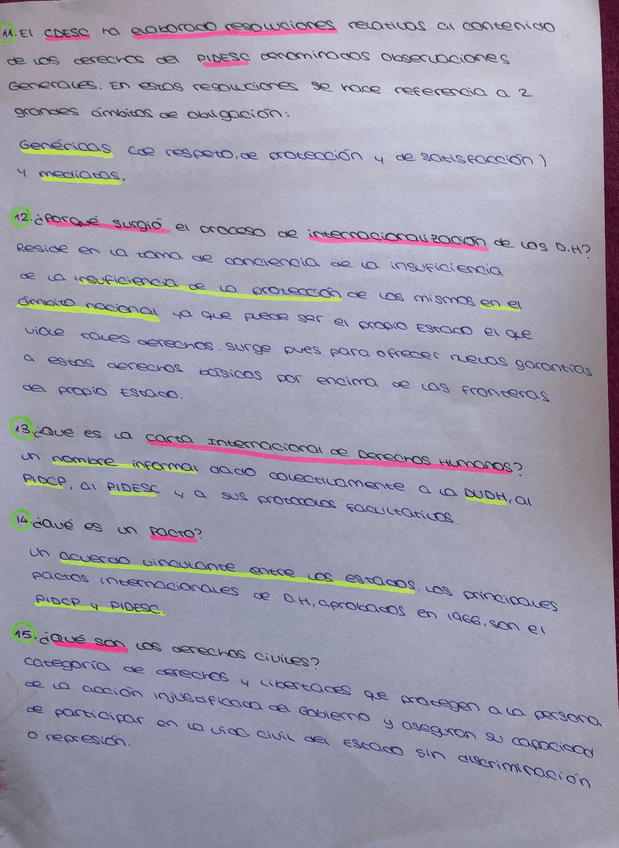 11. El CDESC ha elaborado resoluciones relativas al contenido
de los derechos del PIDESC denominados observaciones
Generales. En estas resoluciones se hace referencia a 2
grandes ámbitos de obligación:
Genéricas (de respeto, de protección y de satisfacción)
y mediatas.
12. ¿Porqué surgió el proceso de internacionalización de los D.H?
Reside en la toma de conciencia de la insuficiencia
de la insuficiencia de la protección de los mismos en el
ámbito nacional ya que puede ser el propio Estado el que
viole tales derechos. Surge pues para ofrecer nuevas garantías
a estos derechos básicos por encima de las fronteras
del propio Estado.
13. ¿Qué es la Carta Internacional de Derechos Humanos?
Un nombre informal dado colectivamente a la DUDH, al
PIDCP, al PIDESC y a sus protocolos facultativos.
14. ¿Qué es un Pacto?
Un acuerdo vinculante entre los estados. Los principales
pactos internacionales de D.H, aprobados en 1966, son el
PIDCP y PIDESC.
15. ¿Qué son los derechos civiles?
Categoría de derechos y libertades que protegen a la persona
de la acción injustificada del Gobierno y aseguran su capacidad
de participar en la vida civil del Estado sin discriminación
o represión.